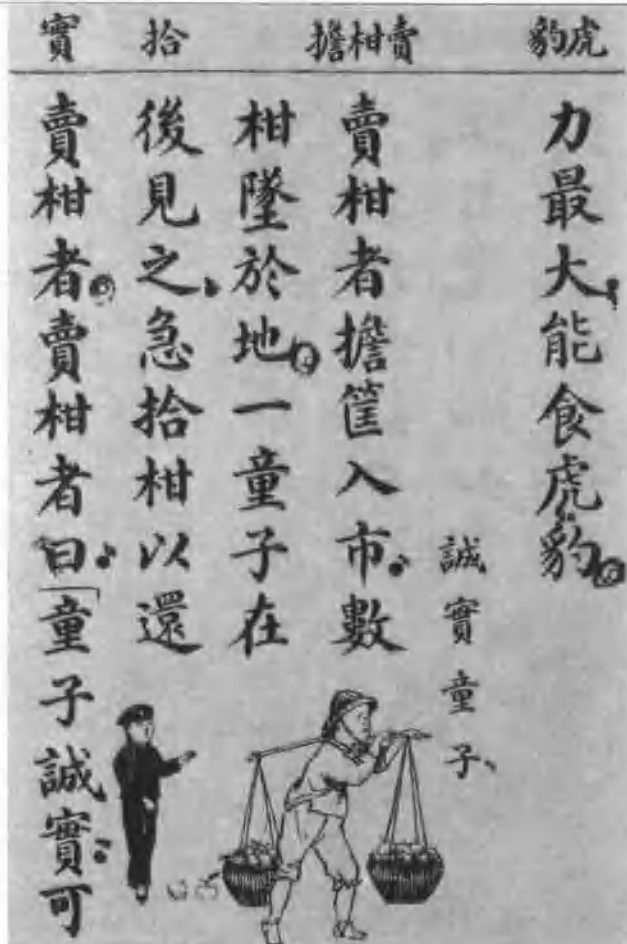 虎豹
賣柑擔
拾
實
力最大能食虎豹
誠實童子
賣柑者擔筐入市數
柑墜於地一童子在
後見之急拾柑以還
賣柑者賣柑者曰「童子誠實可